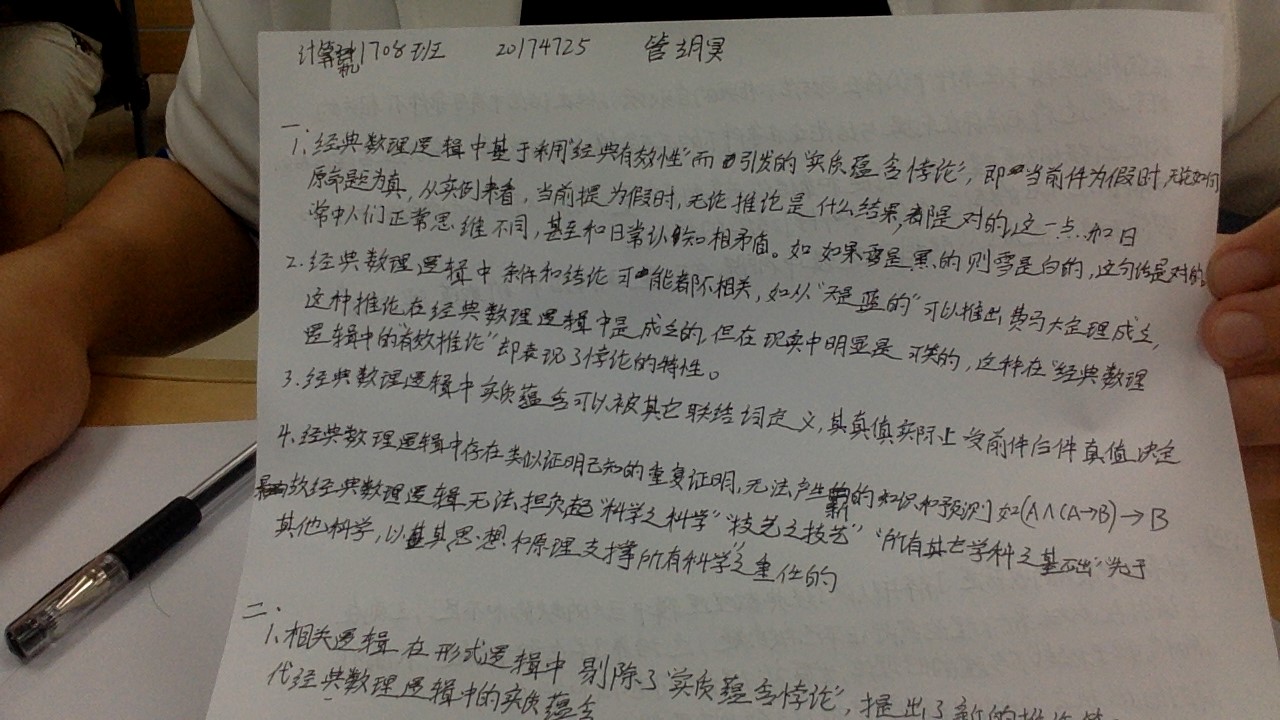 计算机1708班 20174725 管胡昊
一、
1. 经典数理逻辑中基于采用"经典有效性"而引发的"实质蕴含悖论"，即当前件为假时，无论如何
原命题为真，从实例来看，当前提为假时，无论推论是什么结果，都是对的，这一点和日
常中人们正常思维不同，甚至和日常认知相矛盾。如 如果雪是黑的则雪是白的，这句话是对的
2. 经典数理逻辑中条件和结论可能都不相关，如从"天是蓝的"可以推出费马大定理成立，
这种推论在经典数理逻辑中是成立的，但在现实中明显是可笑的，这种在"经典数理
逻辑中的有效推论"却表现了悖论的特性。
3. 经典数理逻辑中实质蕴含可以被其它联结词定义，其真值实际上受前件后件真值决定
4. 经典数理逻辑中存在类似证明已知的重复证明，无法产生新的知识和预测 如(A∧(A→B)→B
故经典数理逻辑无法担负起"科学之科学""技艺之技艺""所有其它学科之基础"先于
其他科学，以其思想和原理支撑所有科学之重任的
二、
1. 相关逻辑在形式逻辑中剔除了"实质蕴含悖论"，提出了新的
代经典数理逻辑中的实质蕴含